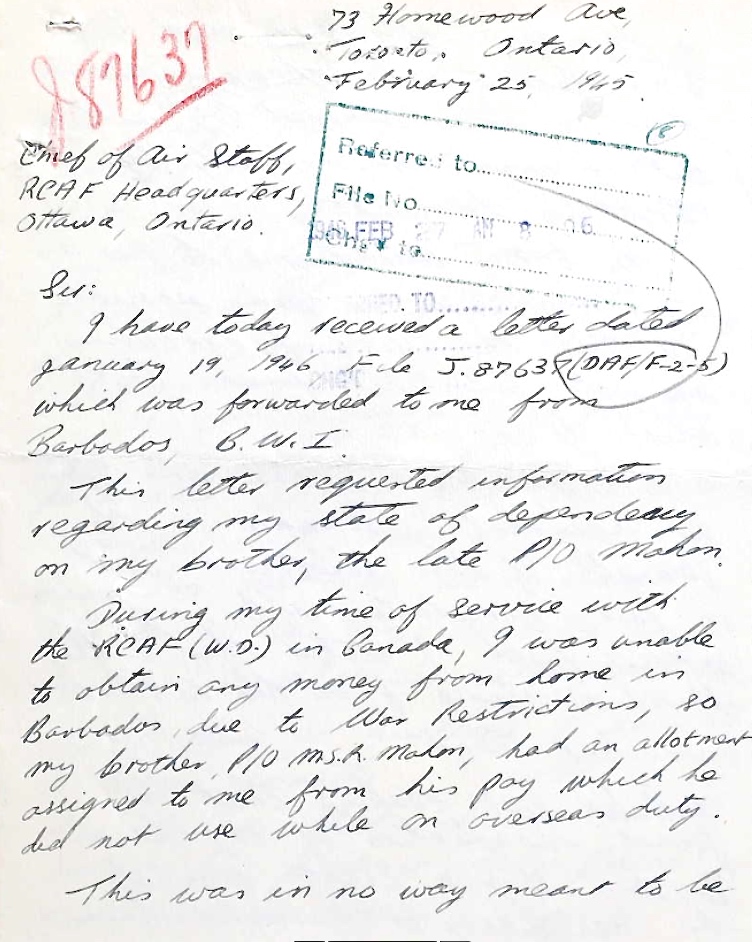 73 Homewood Ave,
Toronto, Ontario,
February 25, 1945.
J87637
8
Chief of Air Staff,
RCAF Headquarters,
Ottawa, Ontario.
Referred to
File No.
Chg'd to
1946 FEB 27 AM 8 06
Sir:
REFERRED TO
I have today received a letter dated
January 19, 1946 File J.87637 (DAF/F-2-5)
which was forwarded to me from
Barbados, B.W.I.
This letter requested information
regarding my state of dependency
on my brother, the late P/O Mahon.
During my time of service with
the RCAF (W.D.) in Canada, I was unable
to obtain any money from home in
Barbados, due to War Restrictions, so
my brother, P/O M.S.R. Mahon, had an allotment
assigned to me from his pay which he
did not use while on overseas duty.
This was in no way meant to be